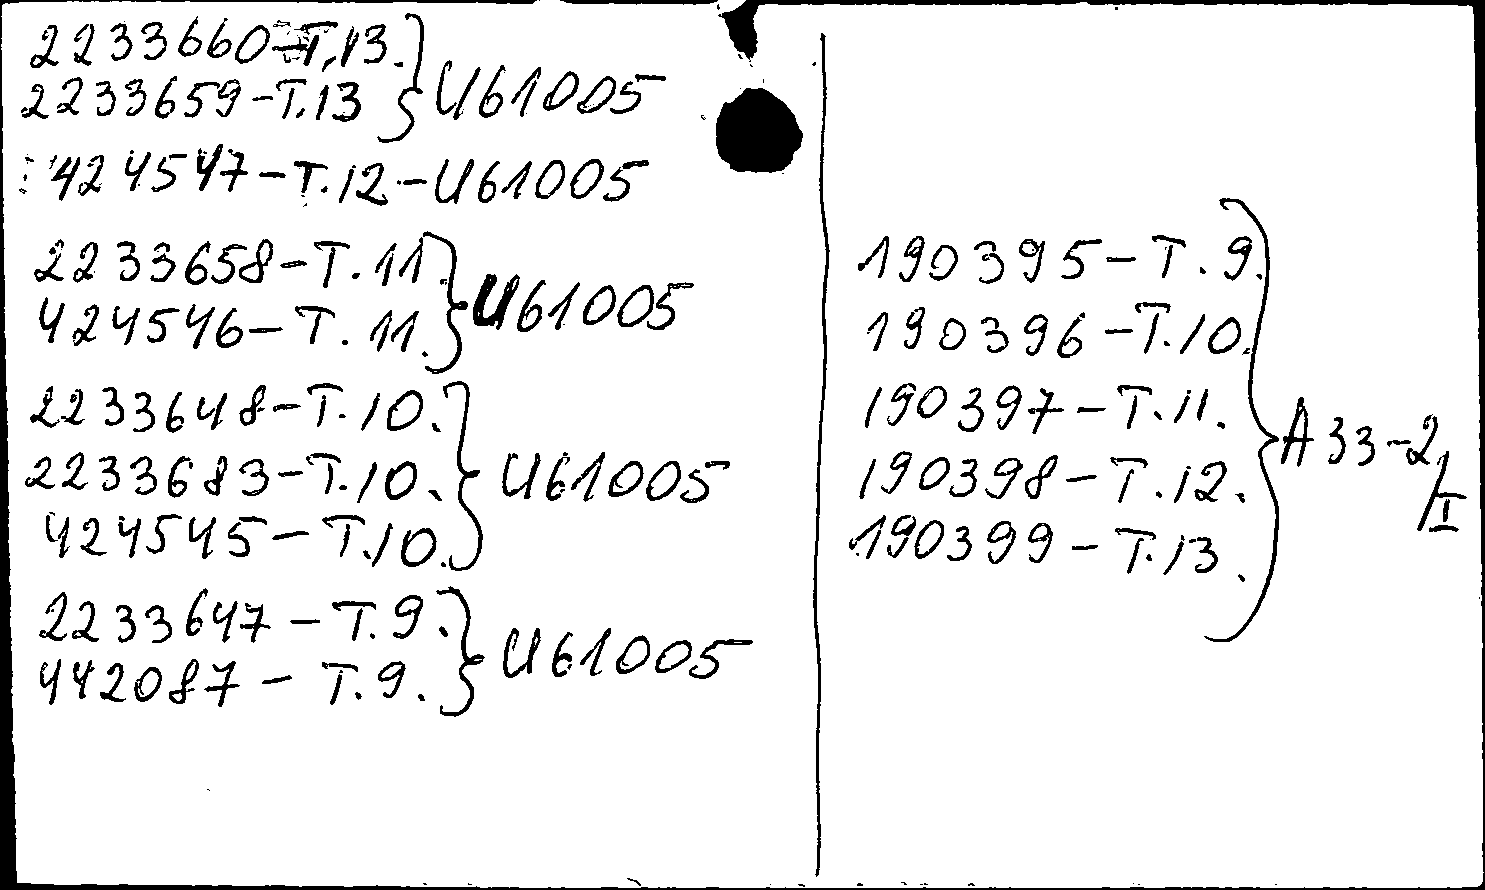 2233660-Т.13. } И61005
2233659-Т.13
424547-Т.12-И61005
2233658-Т.11. } И61005
424546-Т.11.
2233648-Т.10.
2233683-Т.10. } И61005
424545-Т.10.
2233647-Т.9. } И61005
442087-Т.9.
190395-Т.9.
190396-Т.10.
190397-Т.11. } А33-2/I
190398-Т.12.
190399-Т.13.